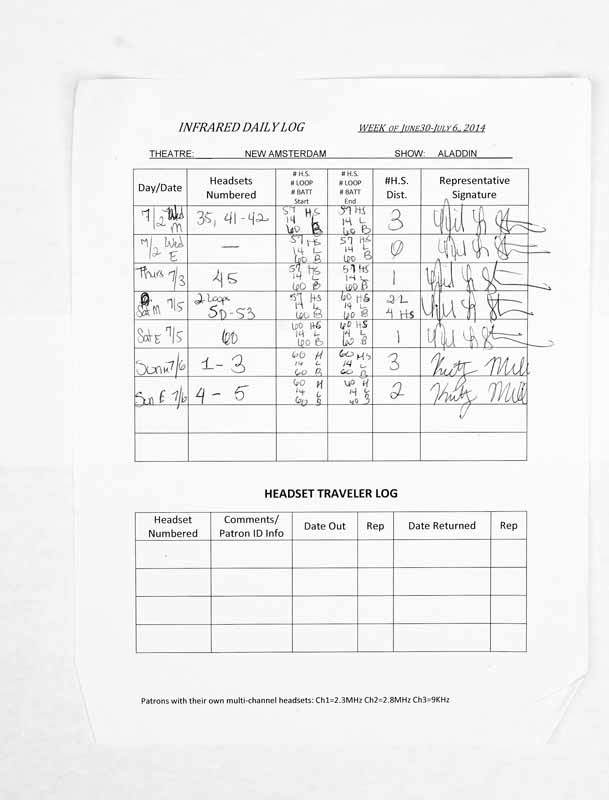 INFRARED DAILY LOG WEEK OF JUNE30-JULY 6, 2014
THEATRE: NEW AMSTERDAM SHOW: ALADDIN
Day/Date Headsets Numbered # H.S. # LOOP # BATT Start # H.S. # LOOP # BATT End #H.S. Dist. Representative Signature
7/2 Wed M 35, 41-42 57 HS 14 L 60 B 57 HS 14 L 60 B 3
7/2 Wed E — 57 HS 14 L 60 B 57 HS 14 L 60 B 0
Thurs 7/3 45 57 HS 14 L 60 B 57 HS 14 L 60 B 1
Sat M 7/5 2 Loops 50-53 57 HS 14 L 60 B 60 HS 14 L 60 B 2 L 4 HS
Sat E 7/5 60 60 HS 14 L 60 B 60 HS 14 L 60 B 1
Sun M 7/6 1-3 60 H 14 L 60 B 60 HS 14 L 60 B 3
Sun E 7/6 4-5 60 H 14 L 60 B 60 H 14 L 60 B 2
HEADSET TRAVELER LOG
Headset Numbered Comments/ Patron ID Info Date Out Rep Date Returned Rep
Patrons with their own multi-channel headsets: Ch1=2.3MHz Ch2=2.8MHz Ch3=9KHz